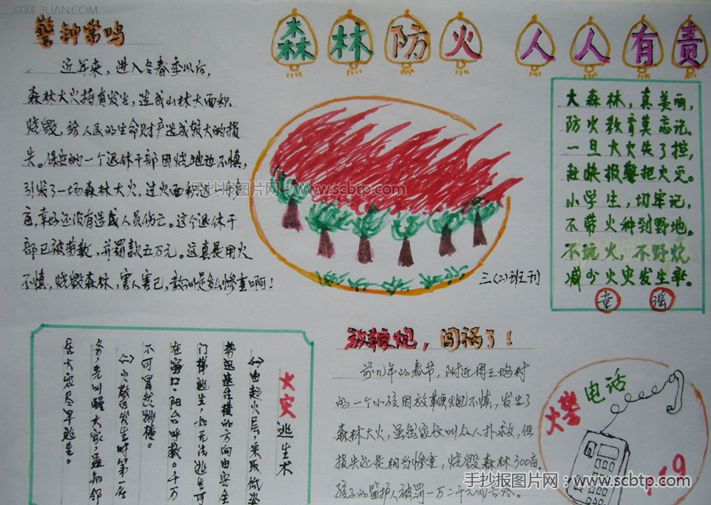 森林防火 人人有责
警钟常鸣
近年来，进入冬春季以后，
森林大火持有发生，造成山林大面积
烧毁，给人民的生命财产造成很大的损
失。的一个退休干部因烧地边不慎，
引发了一场森林大火，过火面积达一
亩，幸好还没有造成人员伤亡。这个退休干
部已被，并罚款五万元。这真是用火
不慎，烧毁森林，害人害己，教训是多么惨重啊！
三(2)班刊
大森林，真美丽，
防火教育莫忘记。
一旦大火失了控，
赶快报警把火灭。
小学生，切牢记，
不带火种到野地。
不玩火，不野炊
减少火灾发生率。
童谣
火灾逃生术
(一)由起火层，采取低姿
势迅速往楼的方向由安全
门梯逃生，如无法逃生可
在窗口、阳台呼救。千万
不可冒然跳楼。
(二)火警发生时第一任
务先叫醒大家，通知邻
居大家尽早逃生。
放鞭炮，闯祸了！
前几年的春节，附近周王坞村
的一个小孩因放鞭炮不慎，发生了
森林大火，虽然家长叫众人扑救，但
损失还是相当惨重，烧毁森林300亩，
孩子的监护人被罚一万二千元
火警电话
119
手抄报图片网 www.scbtp.com
手抄报图片网
www.scbtp.com
三联网 3LIAN.COM